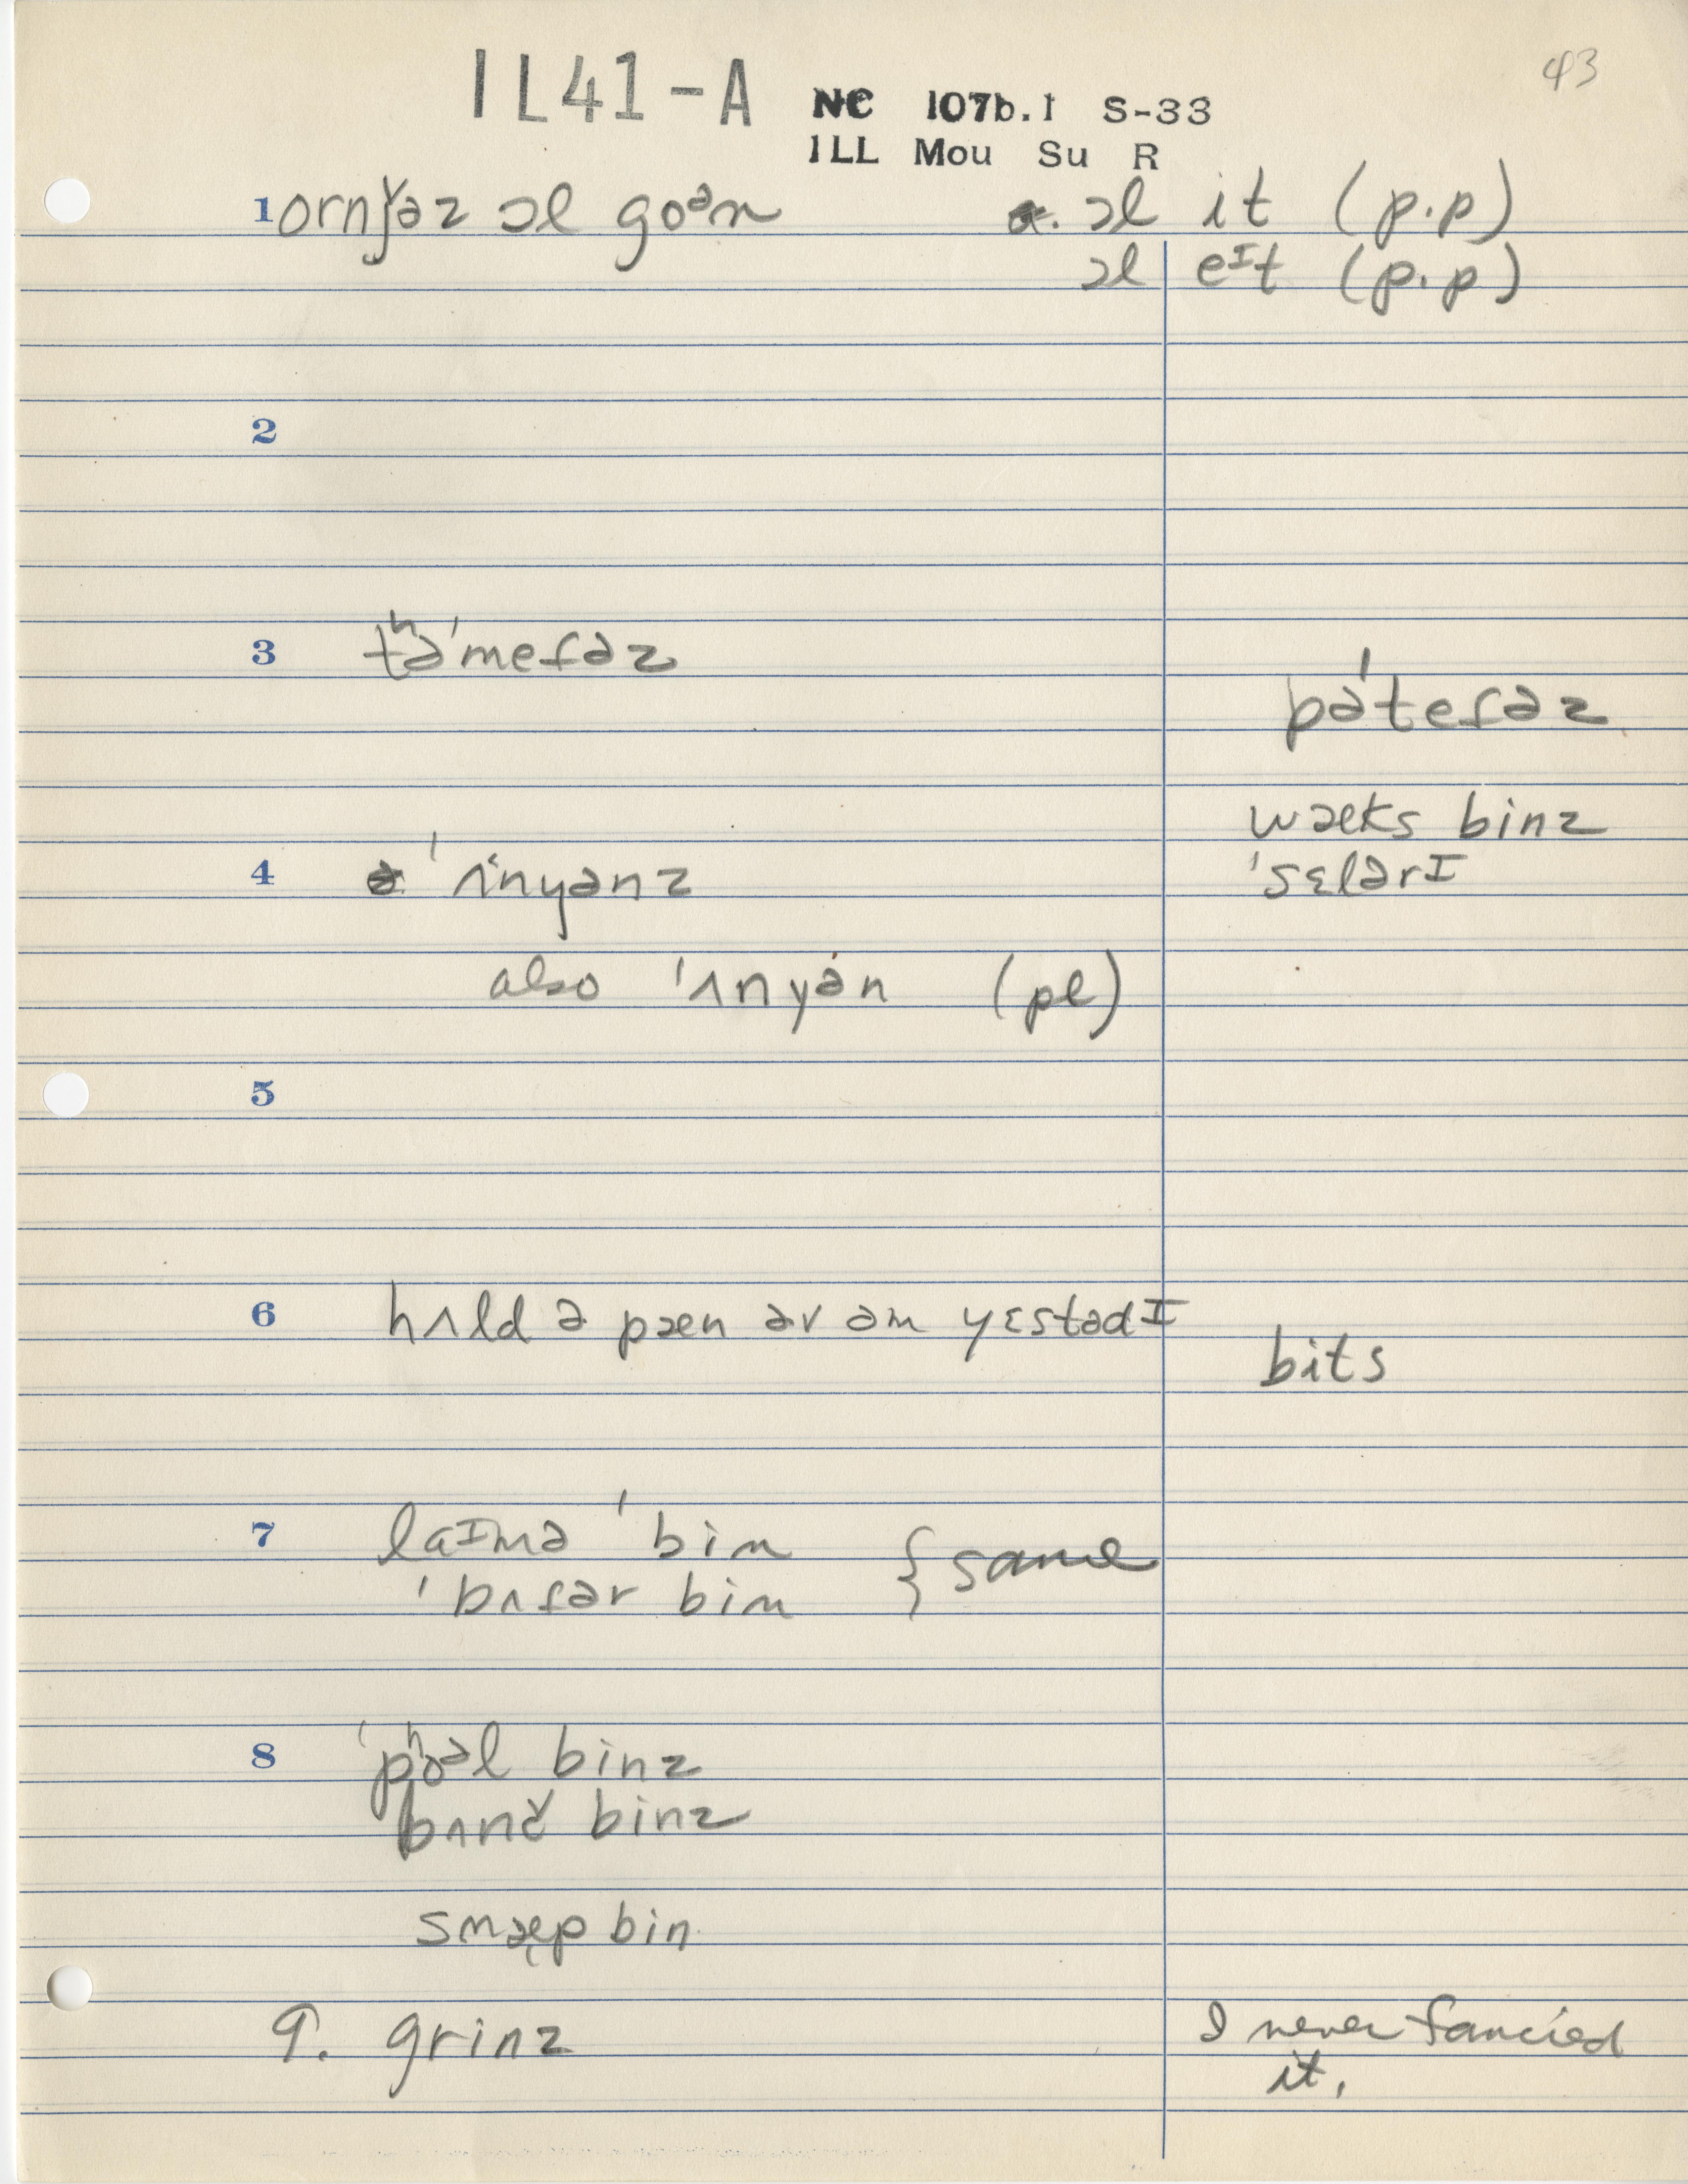 43
IL41-A NC 107b.1 S-33
ILL Mou Su R
1 ornǰəz ɔl goᵊn ɔl it (p.p)
ɔl eᴵt (p.p)
2
3 tʰə'meɾəz
pə'teɾəz
wæks binz
4 'ʌnyənz 'sɛlərɪ
also 'ʌnyən (pl)
5
6 hʌld ə pæn əv əm yɛstədɪ
bits
7 laɪmə 'bin { same
'bʌɾər bin
8 'pʰoᵊl binz
bʌnč binz
snæp bin
9. grinz I never fancied
it.